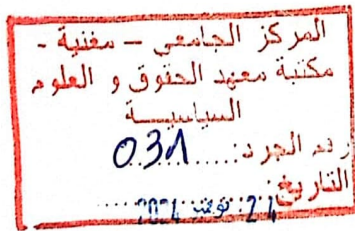 المركز الجامعي – مغنية -
مكتبة معهد الحقوق و العلوم
السياسية
رقم الجرد: 031
التاريخ: 24 نوفمبر